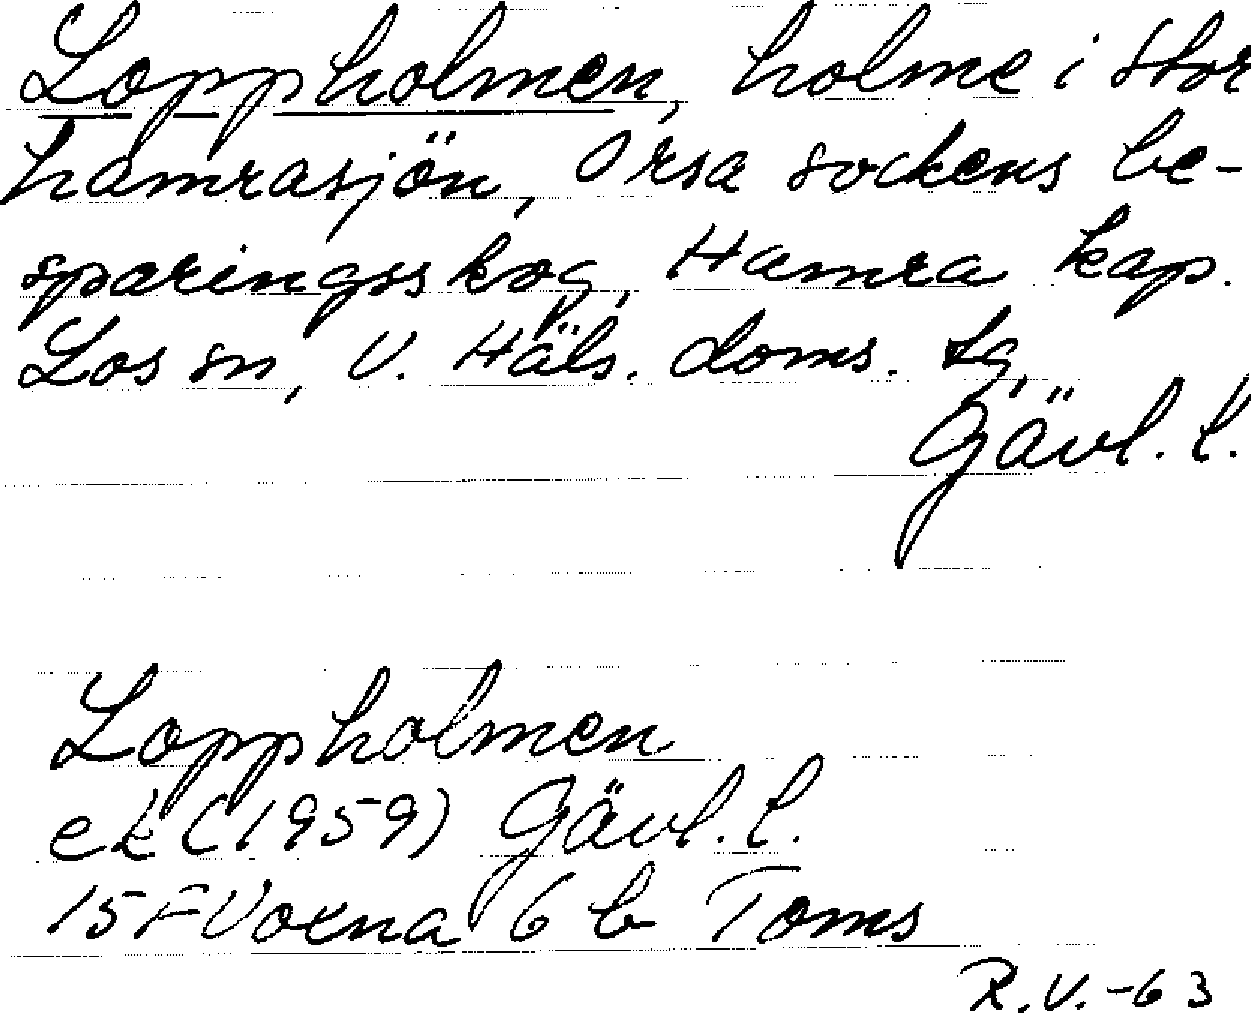 Loppholmen, holme i Stor
hamrasjön, Orsa sockens be-
sparingsskog, Hamra kap.
Los sn, V. Häls. doms. tg,
Gävl. l.
Loppholmen
ek (1959) Gävl. l.
15F Voxna 6 b Toms
R.V.-63